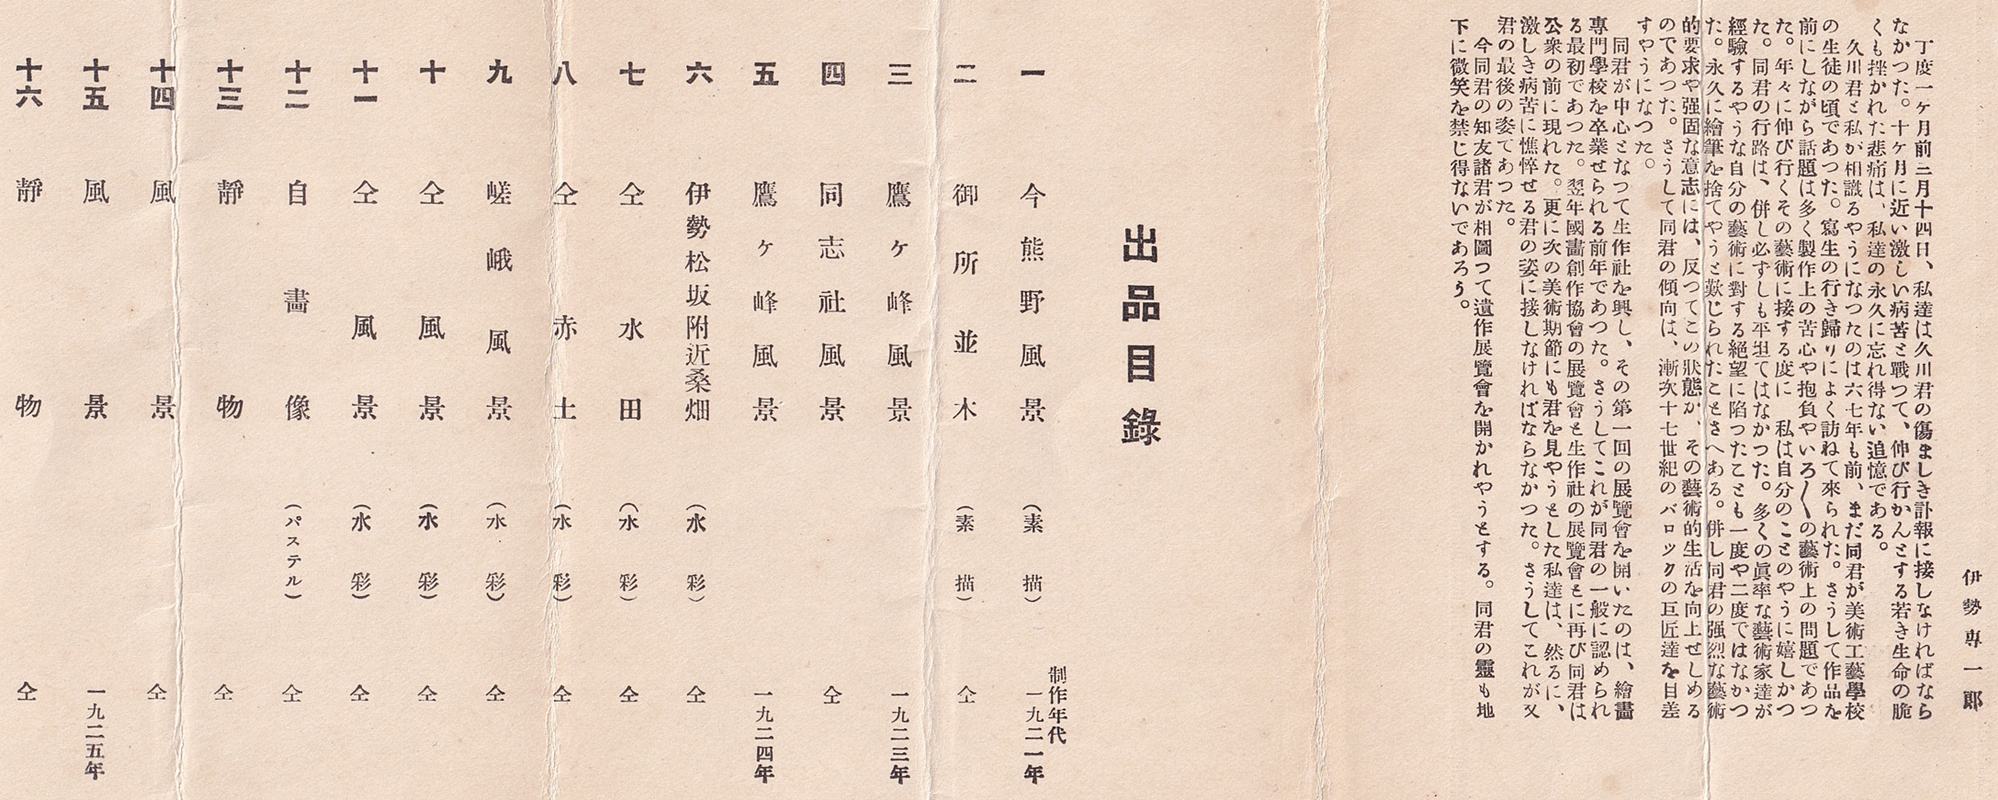 伊勢専一郎
丁度一ヶ月前三月十四日、私達は久川君の傷ましき訃報に接しなければなら
なかつた。十ヶ月に近い激しい病苦と戰つて、伸び行かんとする若き生命の脆
くも挫かれた悲痛は、私達の永久に忘れ得ない追憶である。
久川君と私が相識るやうになつたのは六七年も前、まだ同君が美術工藝學校
の生徒の頃であつた。寫生の行き歸りによく訪ねて來られた。さうして作品を
前にしながら話題は多く製作上の苦心や抱負やいろ〳〵の藝術上の問題であつ
た。年々に伸び行くその藝術に接する度に 私は自分のことのやうに嬉しかつ
た。同君の行路は、併し必ずしも平坦てはなかつた。多くの眞率な藝術家達が
經驗するやうな自分の藝術に對する絕望に陷つたことも一度や二度ではなかつ
た。永久に繪筆を捨てやうと歎じられたことさへある。併し同君の强烈な藝術
的要求や强固な意志には、反つてこの狀態か、その藝術的生活を向上せしめる
のであつた。さうして同君の傾向は、漸次十七世紀のバロックの巨匠達を目差
すやうになつた。
同君が中心となつて生作社を興し、その第一回の展覽會を開いたのは、繪畫
專門學校を卒業せられる前年であつた。さうしてこれが同君の一般に認められ
る最初であつた。翌年國畫創作協會の展覽會と生作社の展覽會とに再び同君は
公衆の前に現れた。更に次の美術期節にも君を見やうとした私達は、然るに、
激しき病苦に憔悴せる君の姿に接しなければならなかつた。さうしてこれが又
君の最後の姿であつた。
今同君の知友諸君が相圖つて遺作展覽會を開かれやうとする。同君の靈も地
下に微笑を禁じ得ないであろう。
出品目錄
制作年代
一 今熊野風景 (素描) 一九二一年
二 御所並木 (素描) 仝
三 鷹ヶ峰風景 一九二三年
四 同志社風景 仝
五 鷹ヶ峰風景 一九二四年
六 伊勢松坂附近桑畑 (水彩) 仝
七 仝 水田 (水彩) 仝
八 仝 赤土 (水彩) 仝
九 嵯峨風景 (水彩) 仝
十 仝 風景 (水彩) 仝
十一 仝 風景 (水彩) 仝
十二 自畵像 (パステル) 仝
十三 靜物 仝
十四 風景 仝
十五 風景 一九二五年
十六 靜物 仝